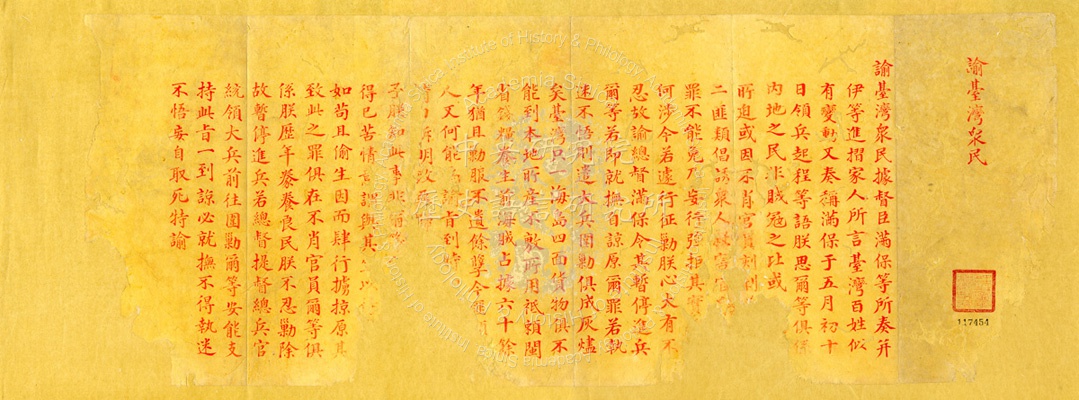 諭臺灣衆民
諭臺灣衆民據督臣滿保等所奏并
伊等進摺家人所言臺灣百姓似
有變動又奏稱滿保于五月初十
日領兵起程等語朕思爾等俱係
內地之民非賊寇之比或
所迫或因不肖官員刻剝
二匪類倡誘衆人殺害官
罪不能免乃妄行强拒其實
何涉今若遽行征勦朕心大有不
忍故諭總督滿保令其暫停進兵
爾等若即就撫自諒原爾罪若執
迷不悟則遣大兵圍勦俱成灰燼
矣臺灣只一海島四面貨物俱不
能到本地所產不敷所用祗賴閩
省錢糧養生並海賊占據六十餘
年猶且勦服不遺餘孽今
人又何能 諭旨到時
訴明改
朕知此事非爾等
得已苦情意謂與其
如苟且偷生因而肆行擄掠原其
致此之罪俱在不肖官員爾等俱
係朕歷年豢養良民朕不忍勦除
故暫停進兵若總督提督總兵官
統領大兵前往圍勦爾等安能支
持此旨一到諒必就撫不得執迷
不悟妄自取死特諭
117454
中央研究院
歷史語言研究所
Institute of History & Philology Academia Sinica